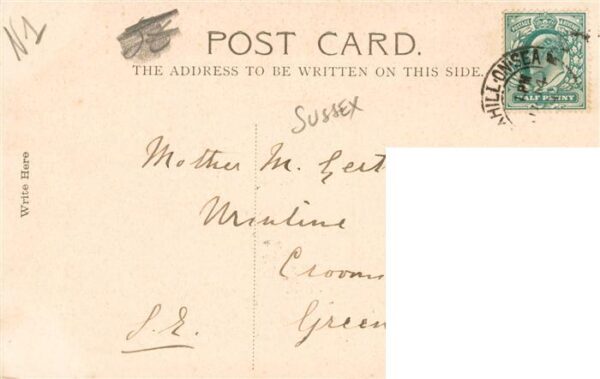 N1
POST CARD.
THE ADDRESS TO BE WRITTEN ON THIS SIDE.
POSTAGE & REVENUE
HALF PENNY
HILL-ON-SEA
PM
SUSSEX
Write Here
Mother M. Gert
Ursuline
Crooms
Green
S.E.